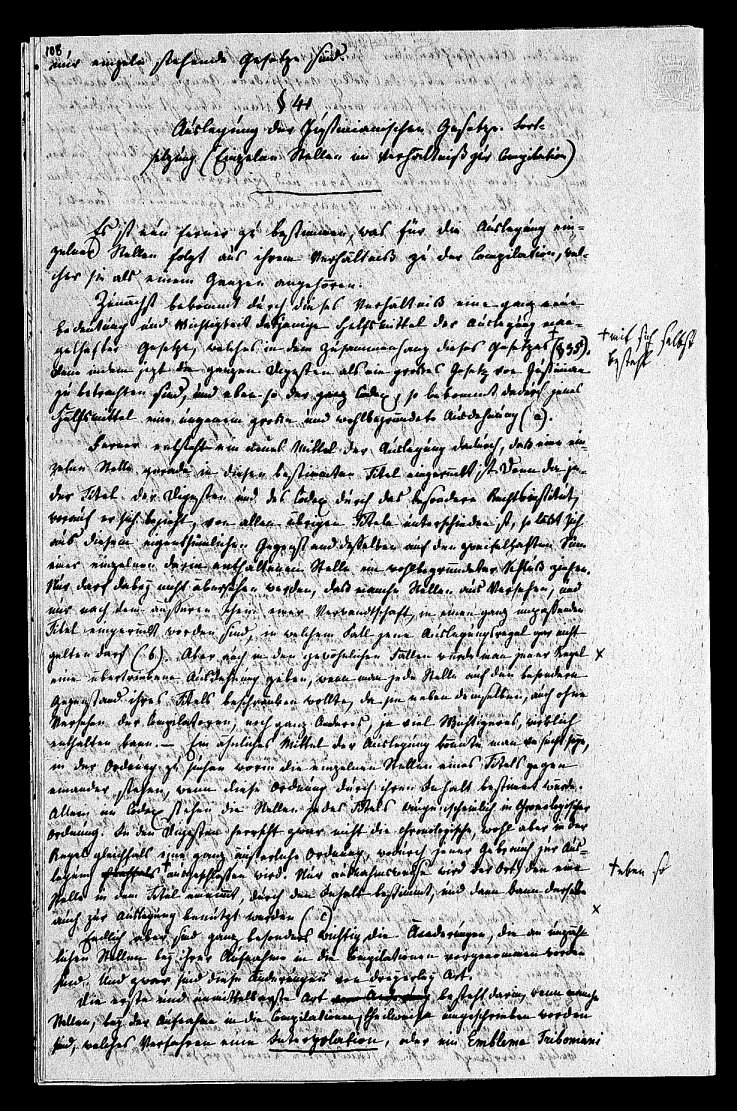 108
nur einzeln stehende Gesetze sind.
§ 41
Auslegung der Justinianischen Gesetze. Fort-
setzung (Einzelne Stellen im Verhältniß zur Compilation)
Es ist nun ferner zu bestimmen, was für die Auslegung ein-
zelner Stellen folgt aus ihrem Verhältniß zu der Compilation, wel-
cher sie als einem Ganzen angehören.
Zunächst bekommt durch dieses Verhältniß eine ganz neue
Bedeutung und Wichtigkeit dasjenige Hülfsmittel der Auslegung man-
gelhafter Gesetze, welches in dem Zusammenhang dieses Gesetzes + (§ 35).
Denn indem jetzt die ganzen Digesten als ein großes Gesetz von Justinian
zu betrachten sind, und eben so der ganze Codex, so bekommt dadurch jenes
Hülfsmittel eine ungemein große und wohlbegründete Ausdehnung (a).
+ mit sich selbst
besteht
Ferner entsteht ein neues Mittel der Auslegung dadurch, daß eine ein-
zelne Stelle gerade in diesen bestimmten Titel eingerückt ist. Denn da je-
der Titel der Digesten und des Codex durch das besondere Rechtsinstitut,
worauf er sich bezieht, von allen übrigen Titeln unterschieden ist, so läßt sich
aus diesem eigenthümlichen Gegenstand desselben auf den zweifelhaften Sinn
einer einzelnen darin enthaltenen Stelle ein wohlbegründeter Schluß ziehen.
Nur darf dabey nicht übersehen werden, daß manche Stellen aus Versehen, und
nur nach dem äußeren Schein einer Verwandtschaft, in einen ganz unpassenden
Titel eingerückt worden sind, in welchem Fall jene Auslegungsregel gar nicht
gelten darf (b). Aber auch in den gewöhnlichen Fällen würde man jener Regel x
eine übertriebene Ausdehnung geben, wenn man jede Stelle auf den besondern
Gegenstand ihres Titels beschränken wollte, da sie neben demselben, auch ohne
Versehen der Compilatoren, noch ganz Anderes, ja viel Wichtigeres, wirklich
enthalten kann. — Ein ähnliches Mittel der Auslegung könnte man versucht seyn,
in der Ordnung zu suchen worin die einzelnen Stellen eines Titels gegen
einander stehen, wenn diese Ordnung durch ihren Inhalt bestimmt würde.
Allein im Codex stehen die Stellen jedes Titels augenscheinlich in chronologischer
Ordnung. In den Digesten herrscht zwar nicht die chronologische, wohl aber in der
Regel gleichfalls eine ganz äußerliche Ordnung, wodurch jener Gebrauch zur Aus-
legung + ausgeschlossen wird. Nur ausnahmsweise wird der Ort, den eine
Stelle in dem Titel einnimmt, durch den Inhalt bestimmt, und dann kann derselbe
auch zur Auslegung benutzt werden (c) x
+ eben so
Endlich aber sind ganz besonders wichtig die Änderungen, die an unzäh-
lichen Stellen bey ihrer Aufnahme in die Compilationen vorgenommen worden
sind. Und zwar sind diese Änderungen von dreyerley Art.
Die erste und unmittelbarste Art besteht darin, wenn manche
Stellen, bey der Aufnahme in die Compilationen, theilweise umgeschrieben worden
sind, welches Verfahren eine Interpolation, oder ein Emblema Triboniani